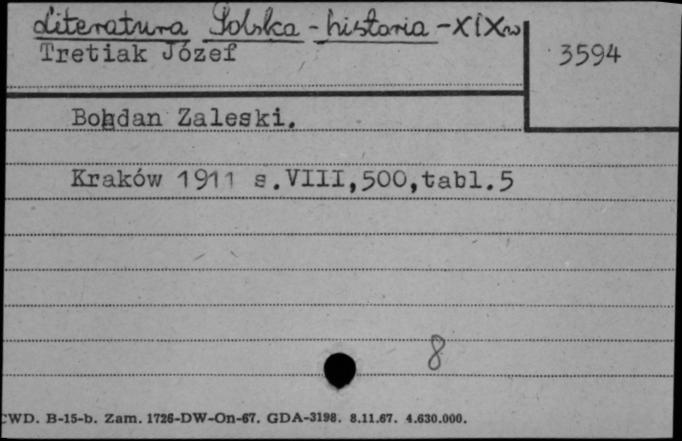 Literatura Polska - historia - XIXw
Tretiak Józef
3594
Bohdan Zaleski.
Kraków 1911 s.VIII,500,tabl.5
8
CWD. B-15-b. Zam. 1726-DW-On-67. GDA-3198. 8.11.67. 4.630.000.